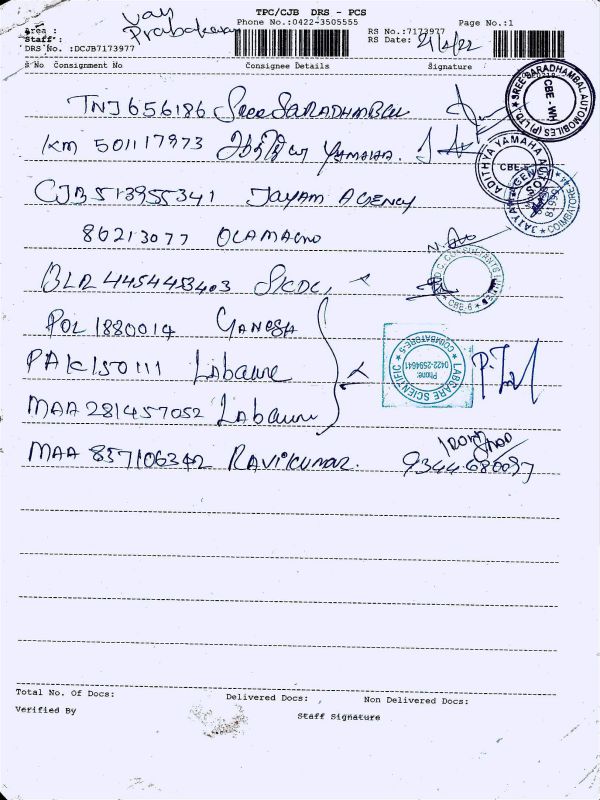 TPC/CJB DRS - PCS
Phone No.:0422-3505555
Page No.:1
Area :
Staff :
Prabakaran
DRS No. :DCJB7173977
RS No.:7173977
RS Date: 21/2/22
S No Consignment No Consignee Details Signature
TNJ656186 Sree SARADHAMBAL
KM 501117973 YAMAHA.
CJB513955341 Jayam AGENCY
86213077
BLR 4454453403 SKDC,
POL 1880014 GANESH
PAK150111
MAA 281457052
MAA 857106342 RAVIKUMAR.
9344680097
SREE SARADHAMBAL AUTOMOBILES (P) LTD
CBE
ADITHYA YAMAHA
CBE
LABCARE SCIENTIFIC
COIMBATORE-5
Phone:
0422-2594641
CBE-6
Total No. Of Docs: Delivered Docs: Non Delivered Docs:
Verified By Staff Signature